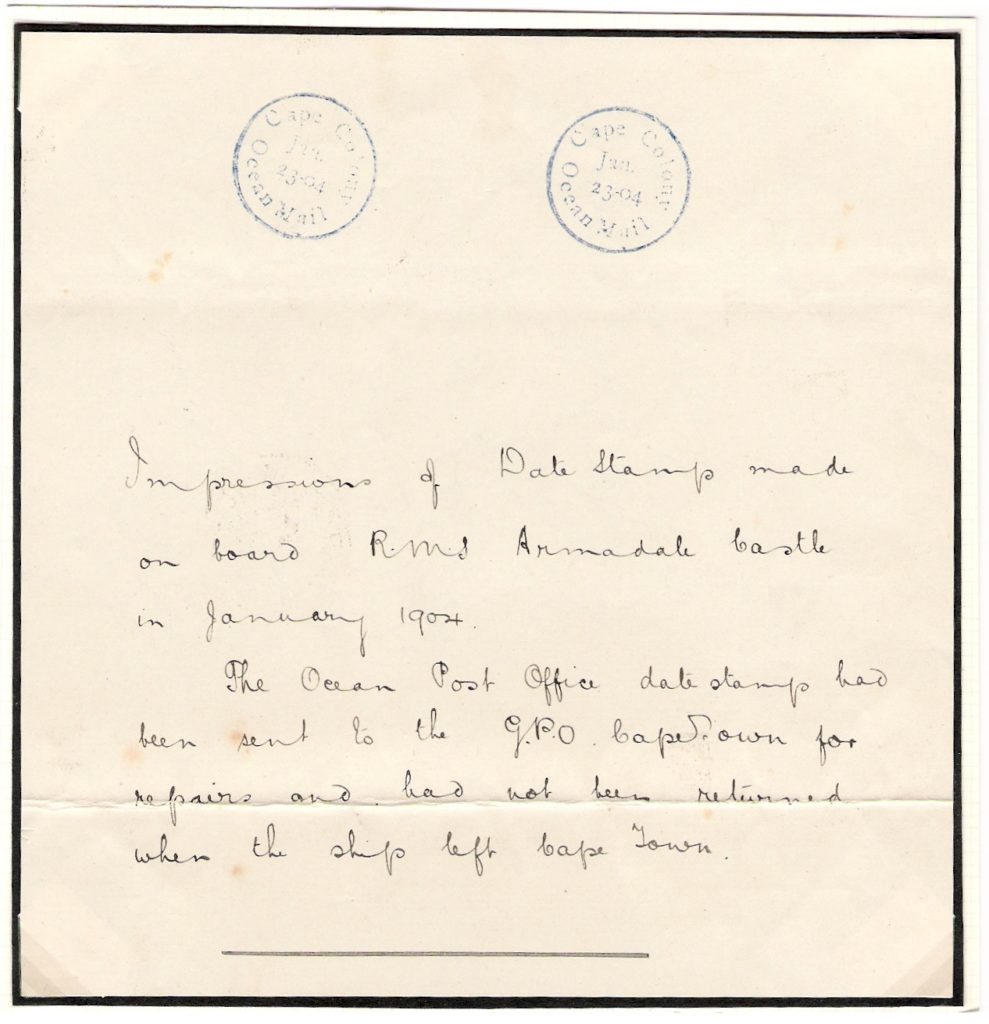 Cape Colony
Jan.
23-04
Ocean Mail
Cape Colony
Jan.
23-04
Ocean Mail
Impressions of Date Stamp made
on board R.M.S Armadale Castle
in January 1904.
The Ocean Post Office date stamp had
been sent to the G.P.O. Cape Town for
repairs and had not been returned
when the ship left Cape Town.